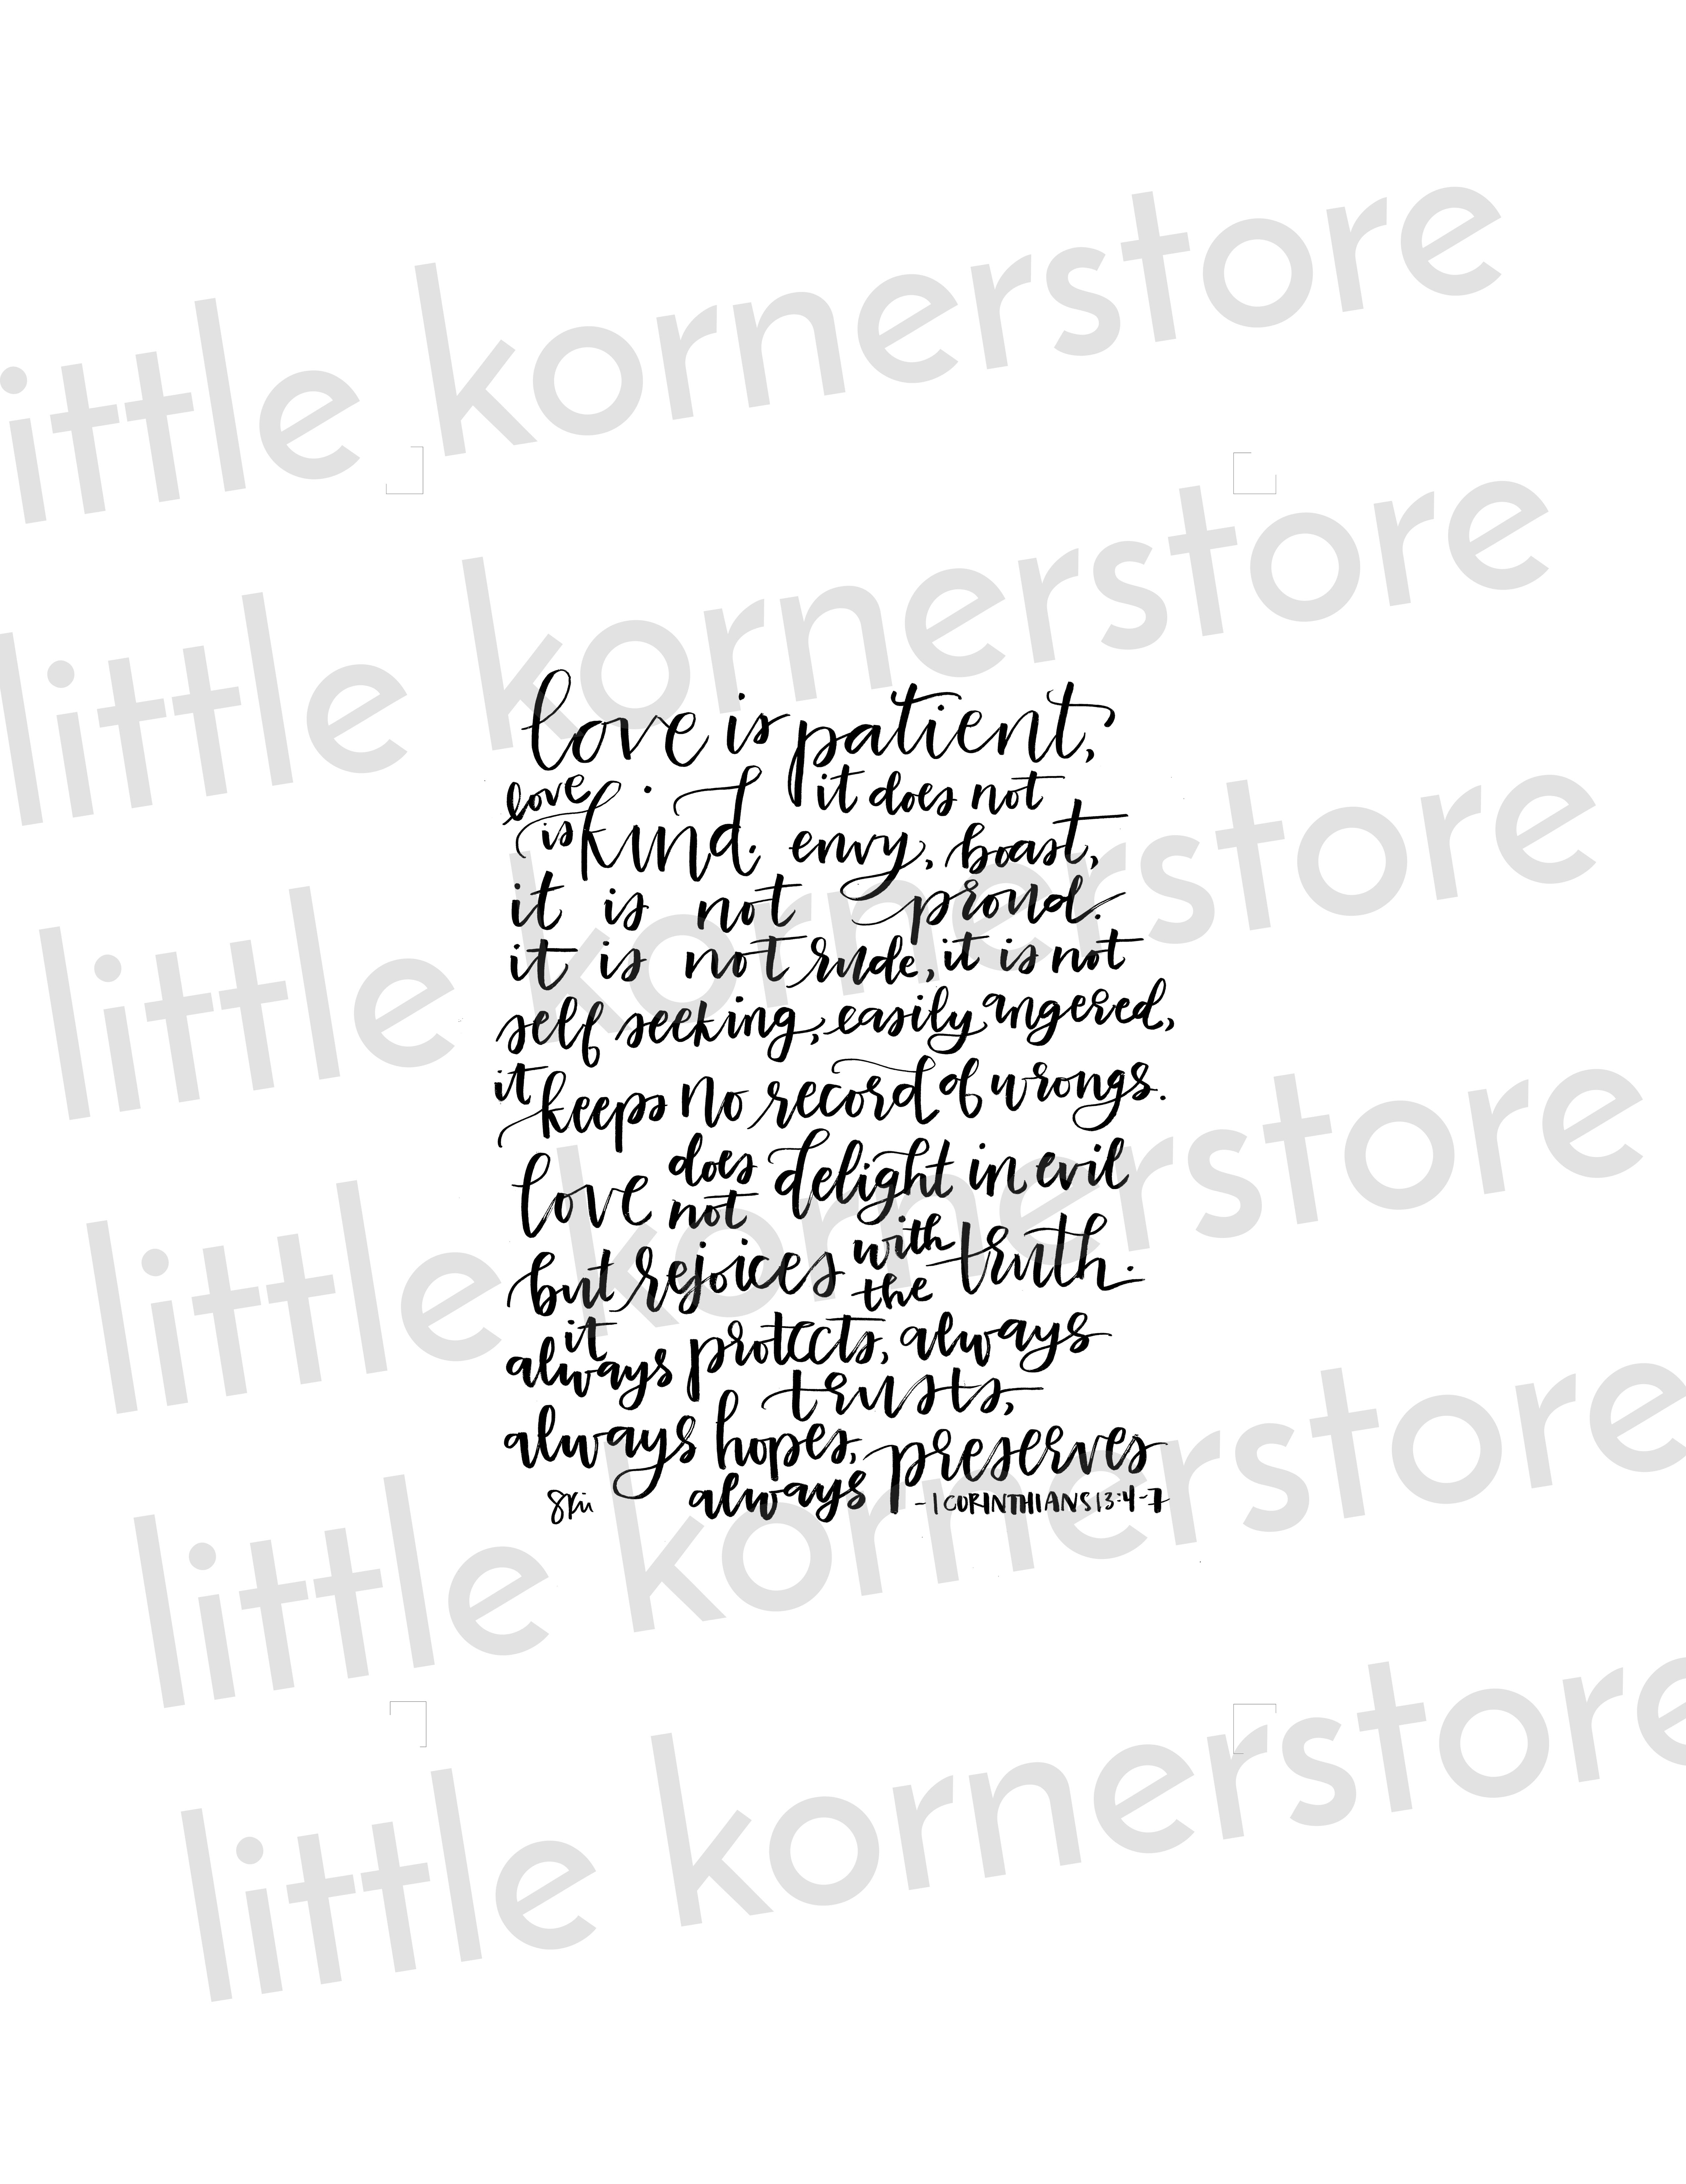 little kornerstore
little kornerstore
love is patient,
love is kind. it does not
envy, boast,
it is not proud.
it is not rude, it is not
self seeking, easily angered,
it keeps no record of wrongs.
love does not delight in evil
but rejoices with the truth.
it always protects, always
trusts,
always hopes,
always preserves
Skii
-1 CORINTHIANS 13:4-7
little kornerstore
little kornerstore
little kornerstore
little kornerstore